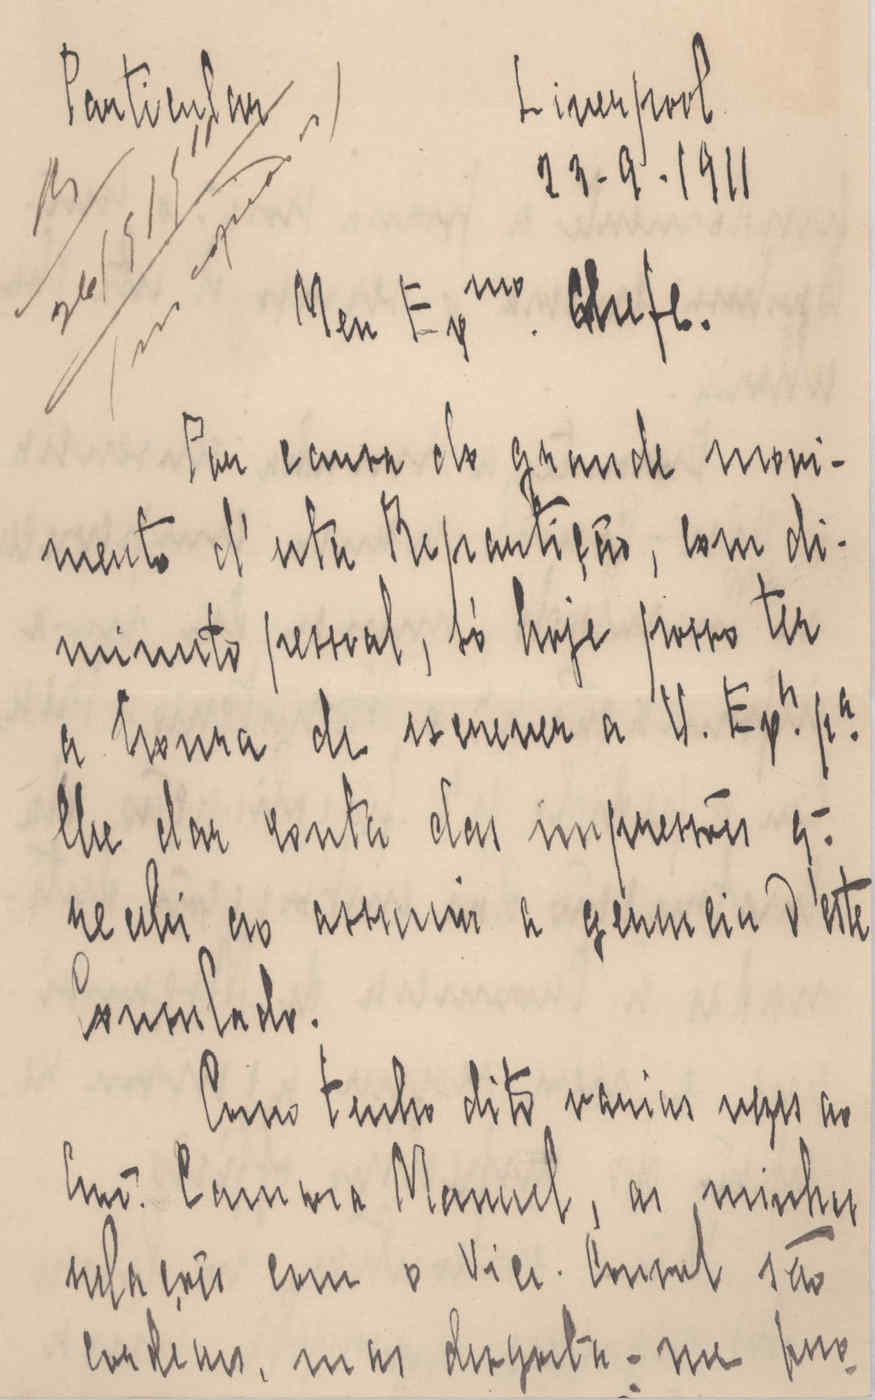 Particular
Liverpool
23-9-1911
Meu Exmo. Chefe.
Por causa do grande movi-
mento d'esta Repartição, com di-
minuto pessoal, só hoje posso ter
a honra de escrever a V. Exª. pª.
lhe dar conta das impressões q.
recebi ao assumir a gerencia d'este
Consulado.
Como tenho dito varias vezes ao
Camara Manuel, as minhas
relações com o Vice-Consul são
cordeaes, mas desgosta-me pro-